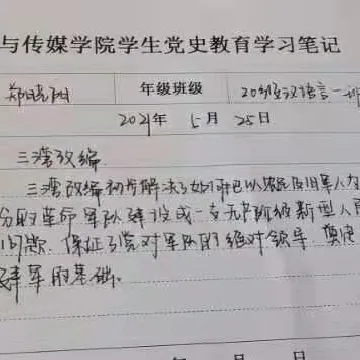 与传媒学院学生党史教育学习笔记
郑晓阳 年级班级 20级汉语言一班
2021年 5月 25日
三湾改编
三湾改编初步解决了如何把以农民及旧军人为
分的革命军队建设成一支无产阶级新型人民
问题，保证了党对军队的绝对领导，奠定
建军的基础。
年 月 日